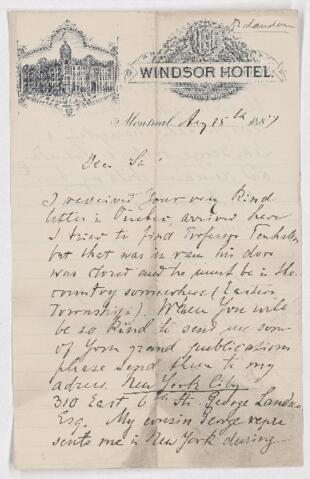 D. Landau
WINDSOR HOTEL.
Montreal, Aug 25th 1887
Dear Sir!
I received your very kind
letter in Quebec, arrived here
I tried to find Professor Penhallow
but that was in vain his door
was closed and he must be in the
country somewhere (Eastern
Townships). When you will
be so kind to send me some
of your grand publications
please send them to my
adress New York City
310 East 6th Str. George Landau
Esq. My cousin George repre
sents me in New York during